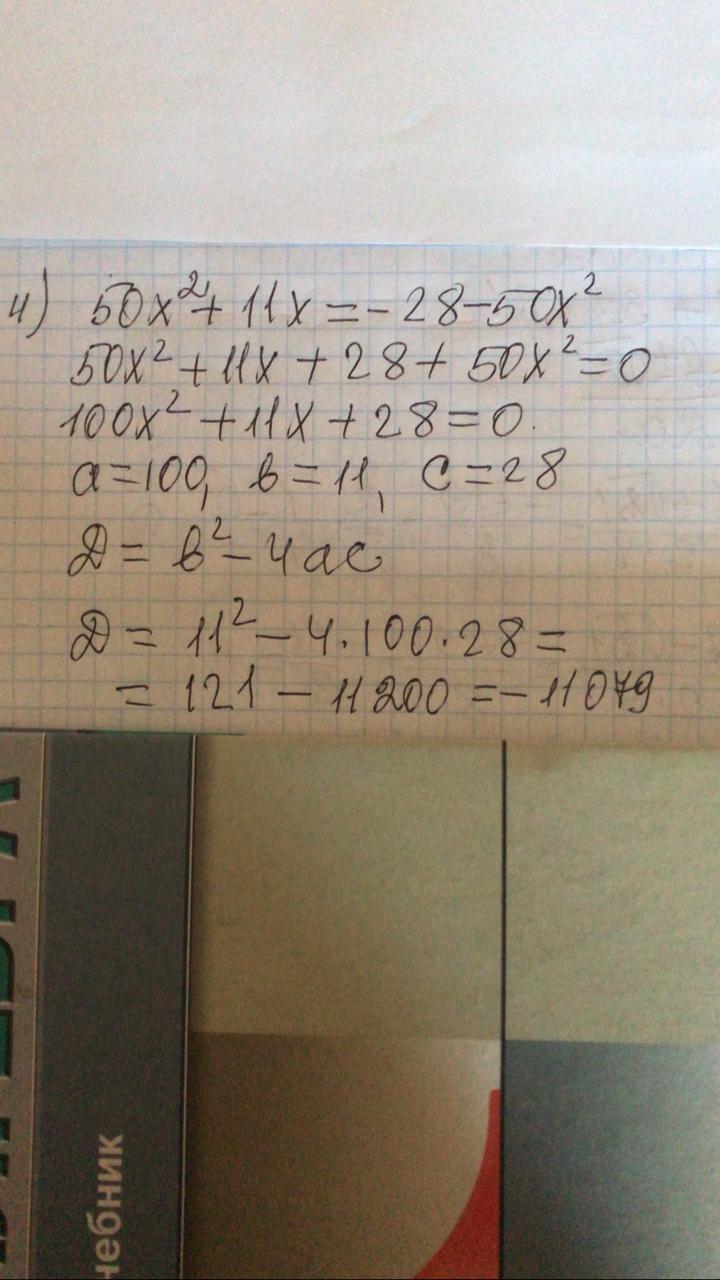 4) 50x²+ 11x = - 28-50x²
50x² + 11x + 28 + 50x² = 0
100x² + 11x + 28 = 0.
a=100, b = 11, c = 28
D = b² - 4ac
D = 11² - 4·100·28 =
= 121 - 11200 = - 11079
чебник